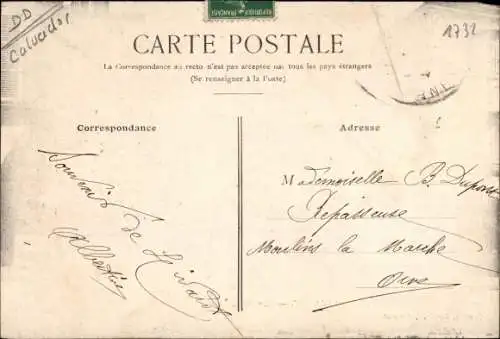 DD
Calvados
1732
CARTE POSTALE
La Correspondance au recto n'est pas acceptée par tous les pays étrangers
(Se renseigner à la Poste)
Correspondance
Adresse
Souvenir
de
Mademoiselle B. Dupont
Repasseuse
Moulins la Marche
Orne